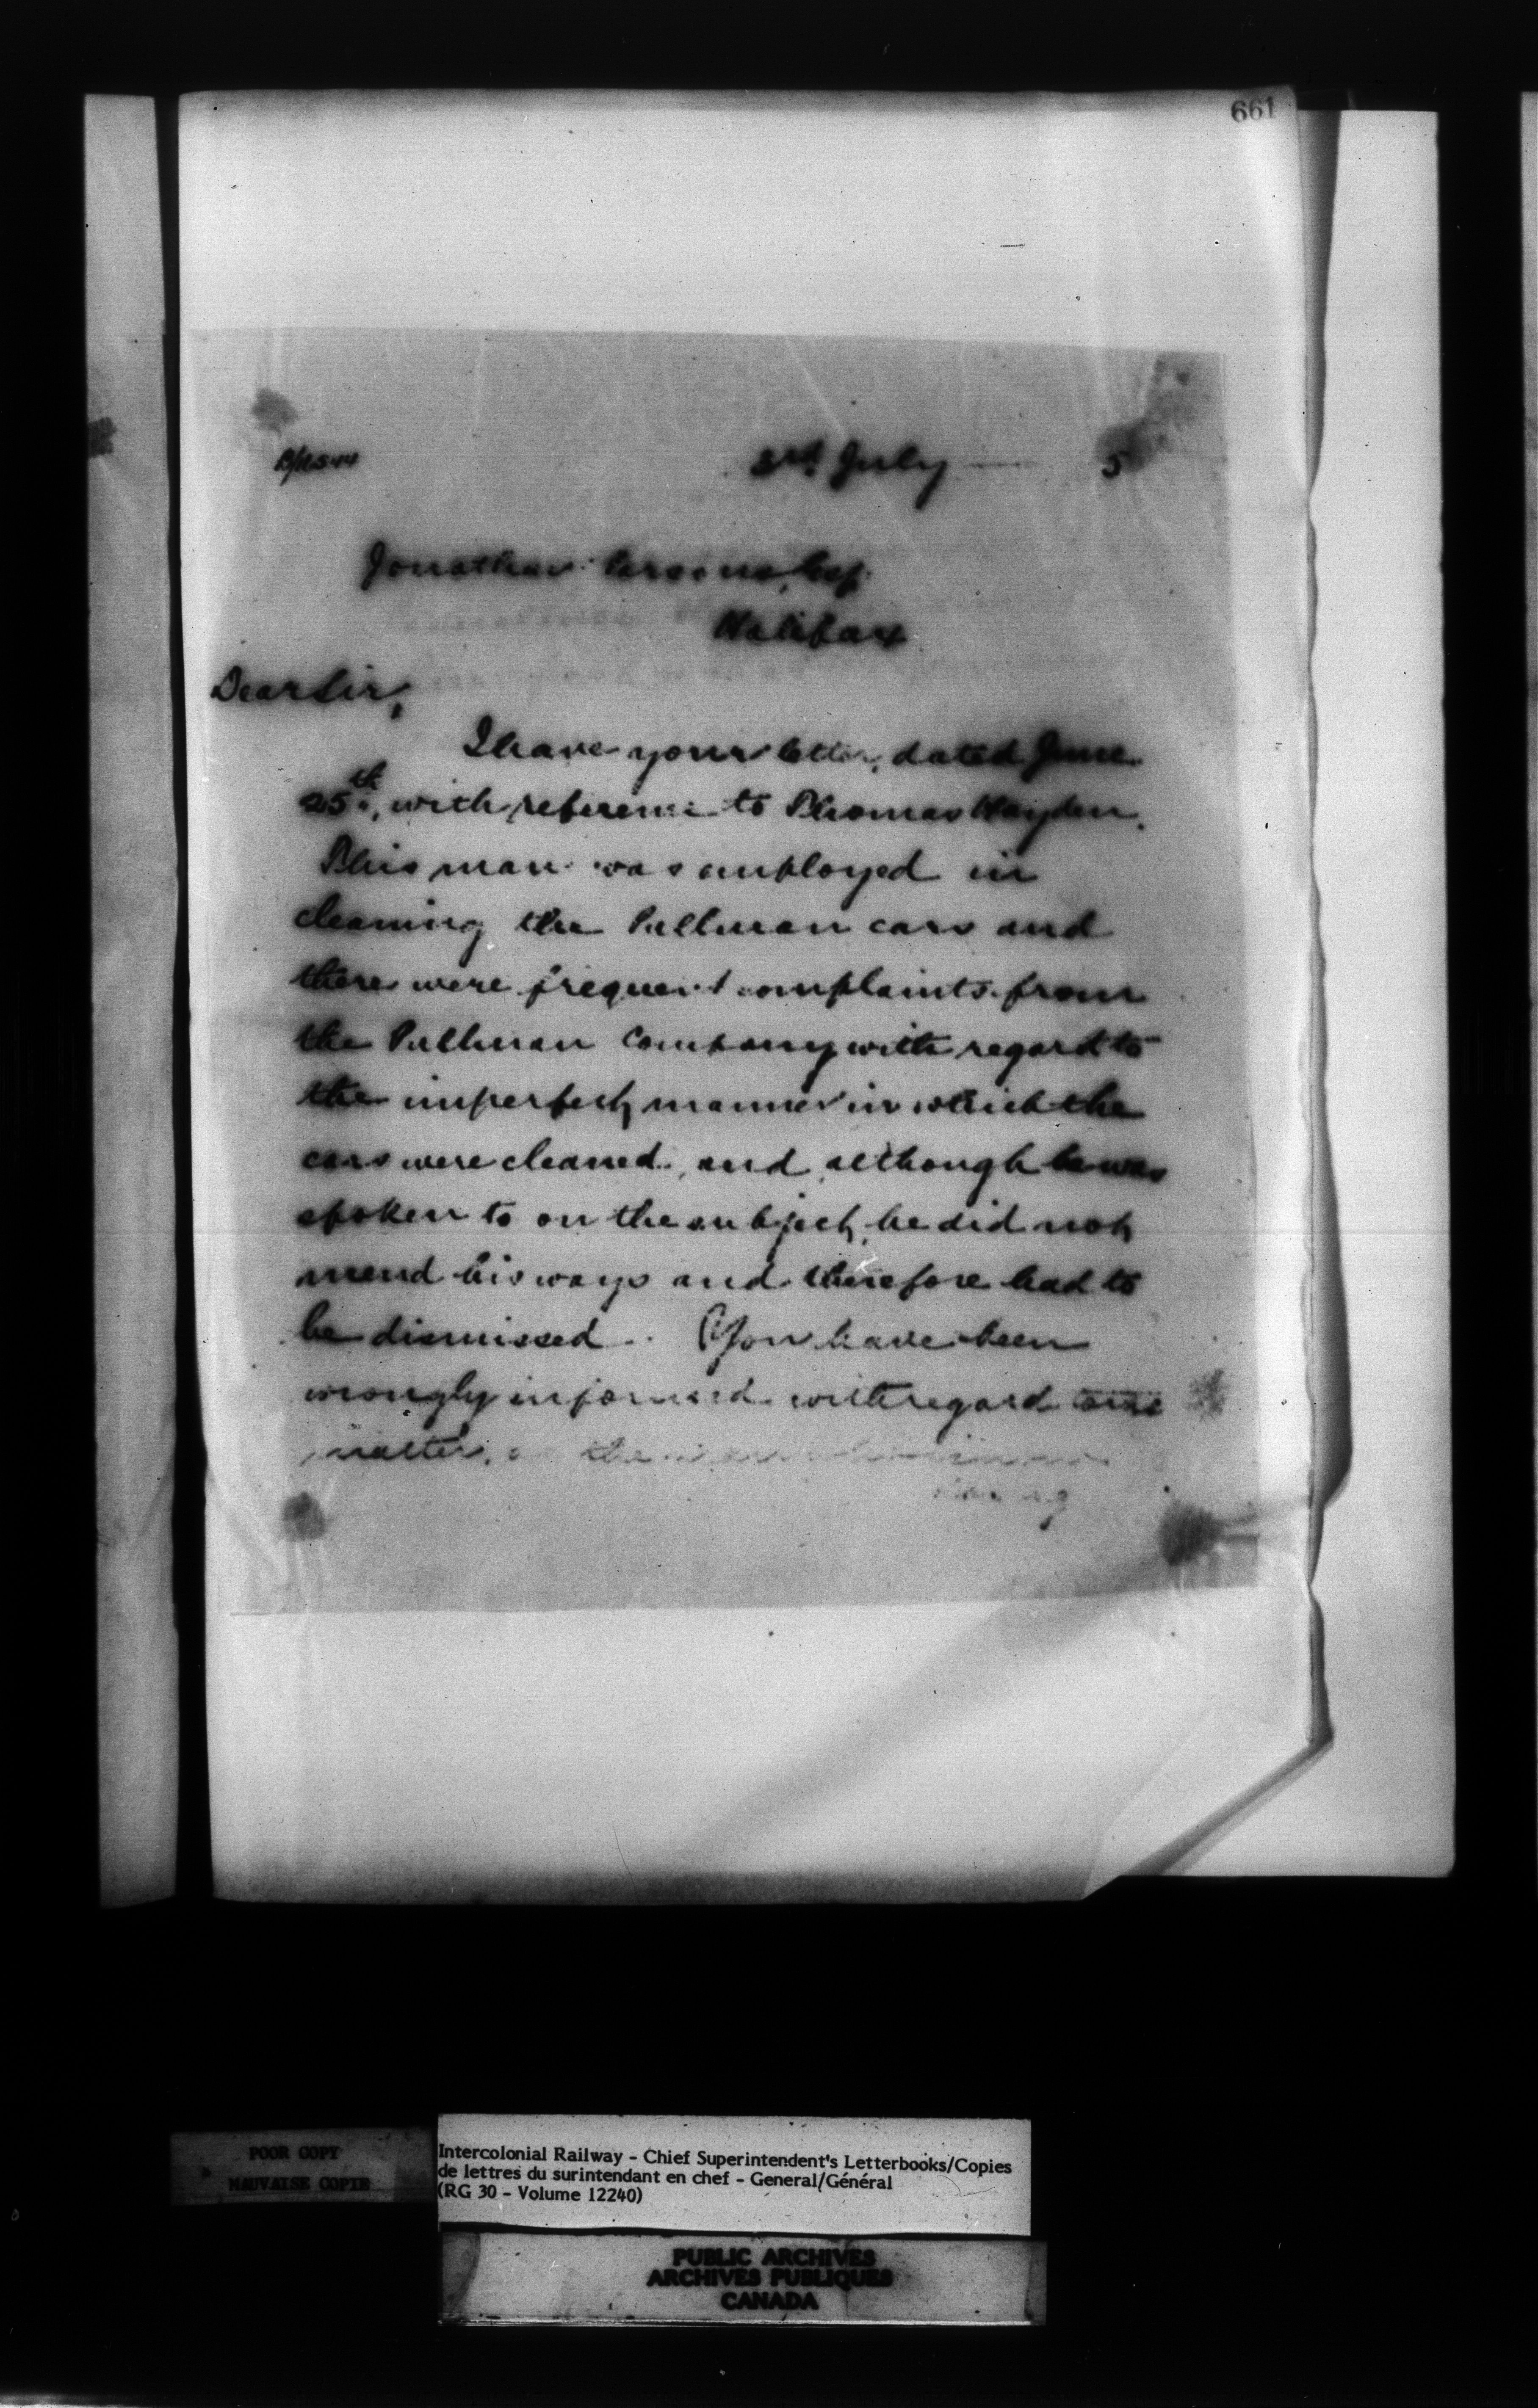 661
3rd July 5
Jonathan Parsons, Esq.
Halifax
Dear Sir,
I have your letter, dated June
25th, with reference to Thomas Hayden.
This man was employed in
cleaning the Pullman cars and
there were frequent complaints from
the Pullman Company with regard to
the imperfect manner in which the
cars were cleaned, and although he was
spoken to on the subject, he did not
mend his ways and therefore had to
be dismissed. You have been
wrongly informed with regard to
matter, the
POOR COPY
MAUVAISE COPIE
Intercolonial Railway - Chief Superintendent's Letterbooks/Copies
de lettres du surintendant en chef - General/Général
(RG 30 - Volume 12240)
PUBLIC ARCHIVES
ARCHIVES PUBLIQUES
CANADA